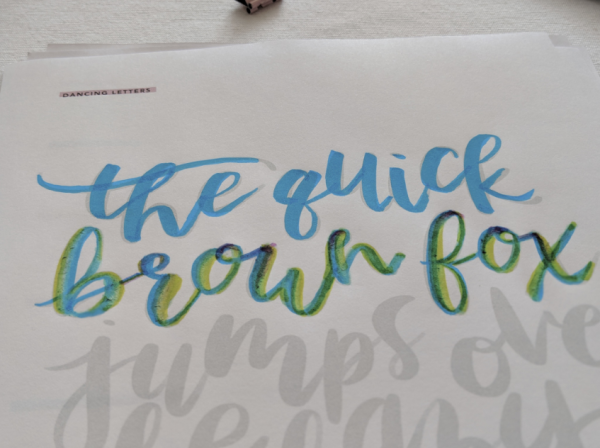 DANCING LETTERS
the quick
brown fox
jumps ove